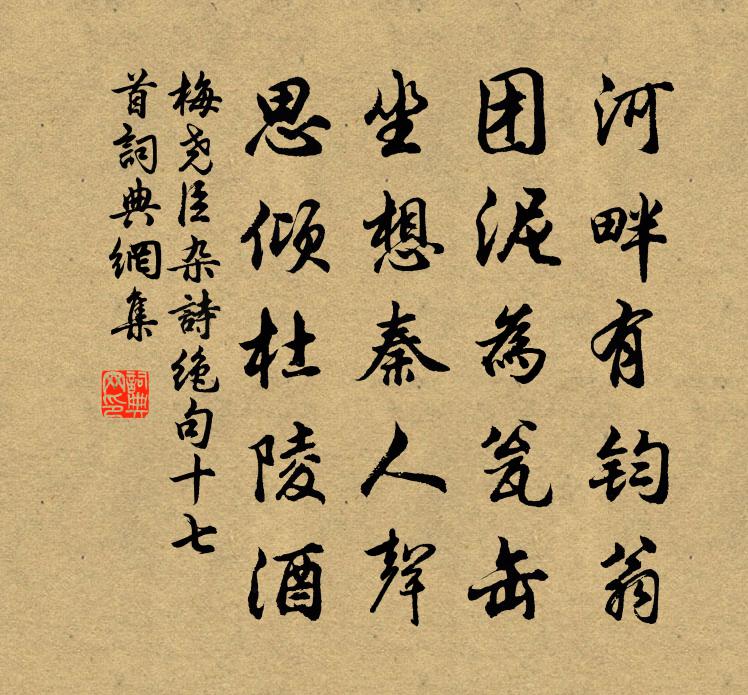 河畔有钧翁
团泥為瓮缶
坐想秦人聲
思倾杜陵酒
梅尧臣杂詩绝句十七
首詞典網集
詞典
网印